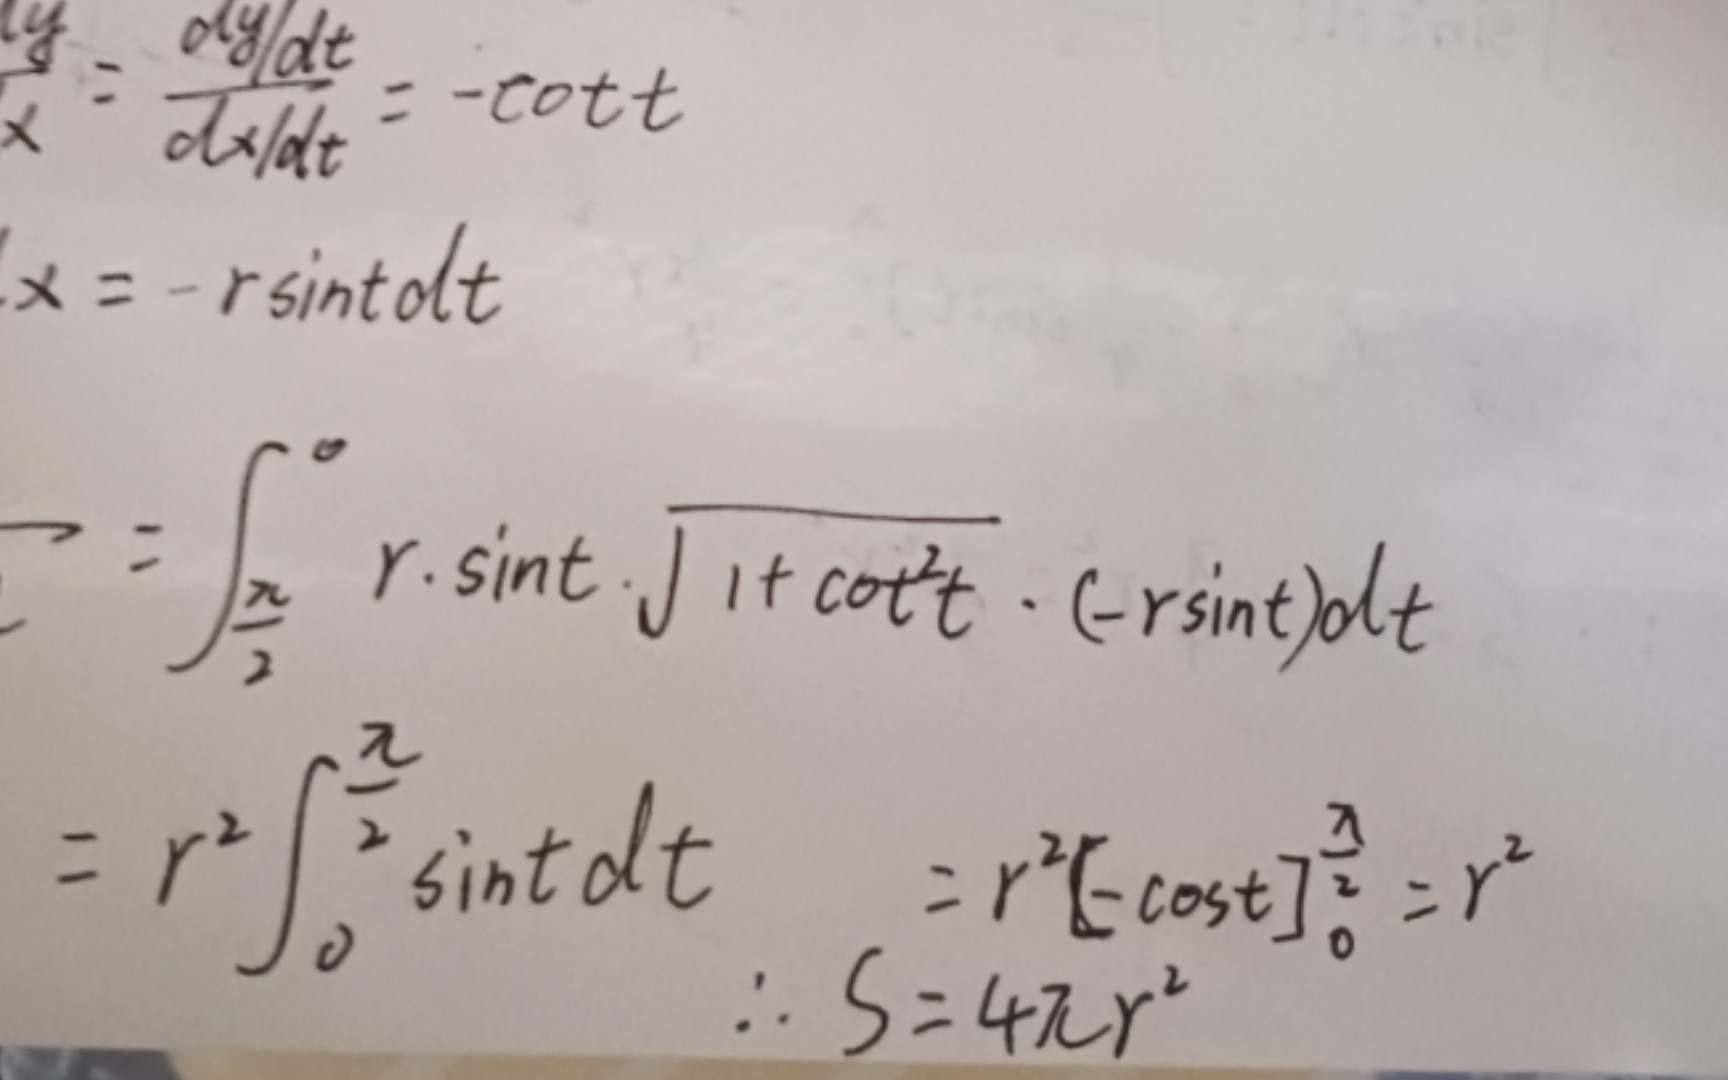 dy/x = dy/dt / dx/dt = -cot t
x = -r sint dt
= ∫_{π/2}^{0} r·sint·√(1+cot²t)·(-rsint)dt
= r² ∫_{0}^{π/2} sint dt = r²[-cost]_{0}^{π/2} = r²
∴ S = 4πr²